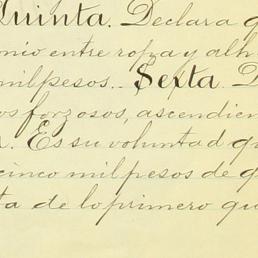 Quinta. Declara q
onio entre ropa y alh
mil pesos.. Sexta. D
os forzosos, ascendien
. Es su voluntad qu
cinco mil pesos de q
ta de lo primero qu